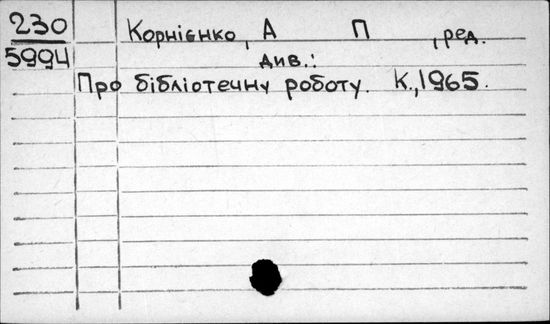 230 Корнієнко, А П , ред.
5994 див.:
Про бібліотечну роботу. К., 1965.